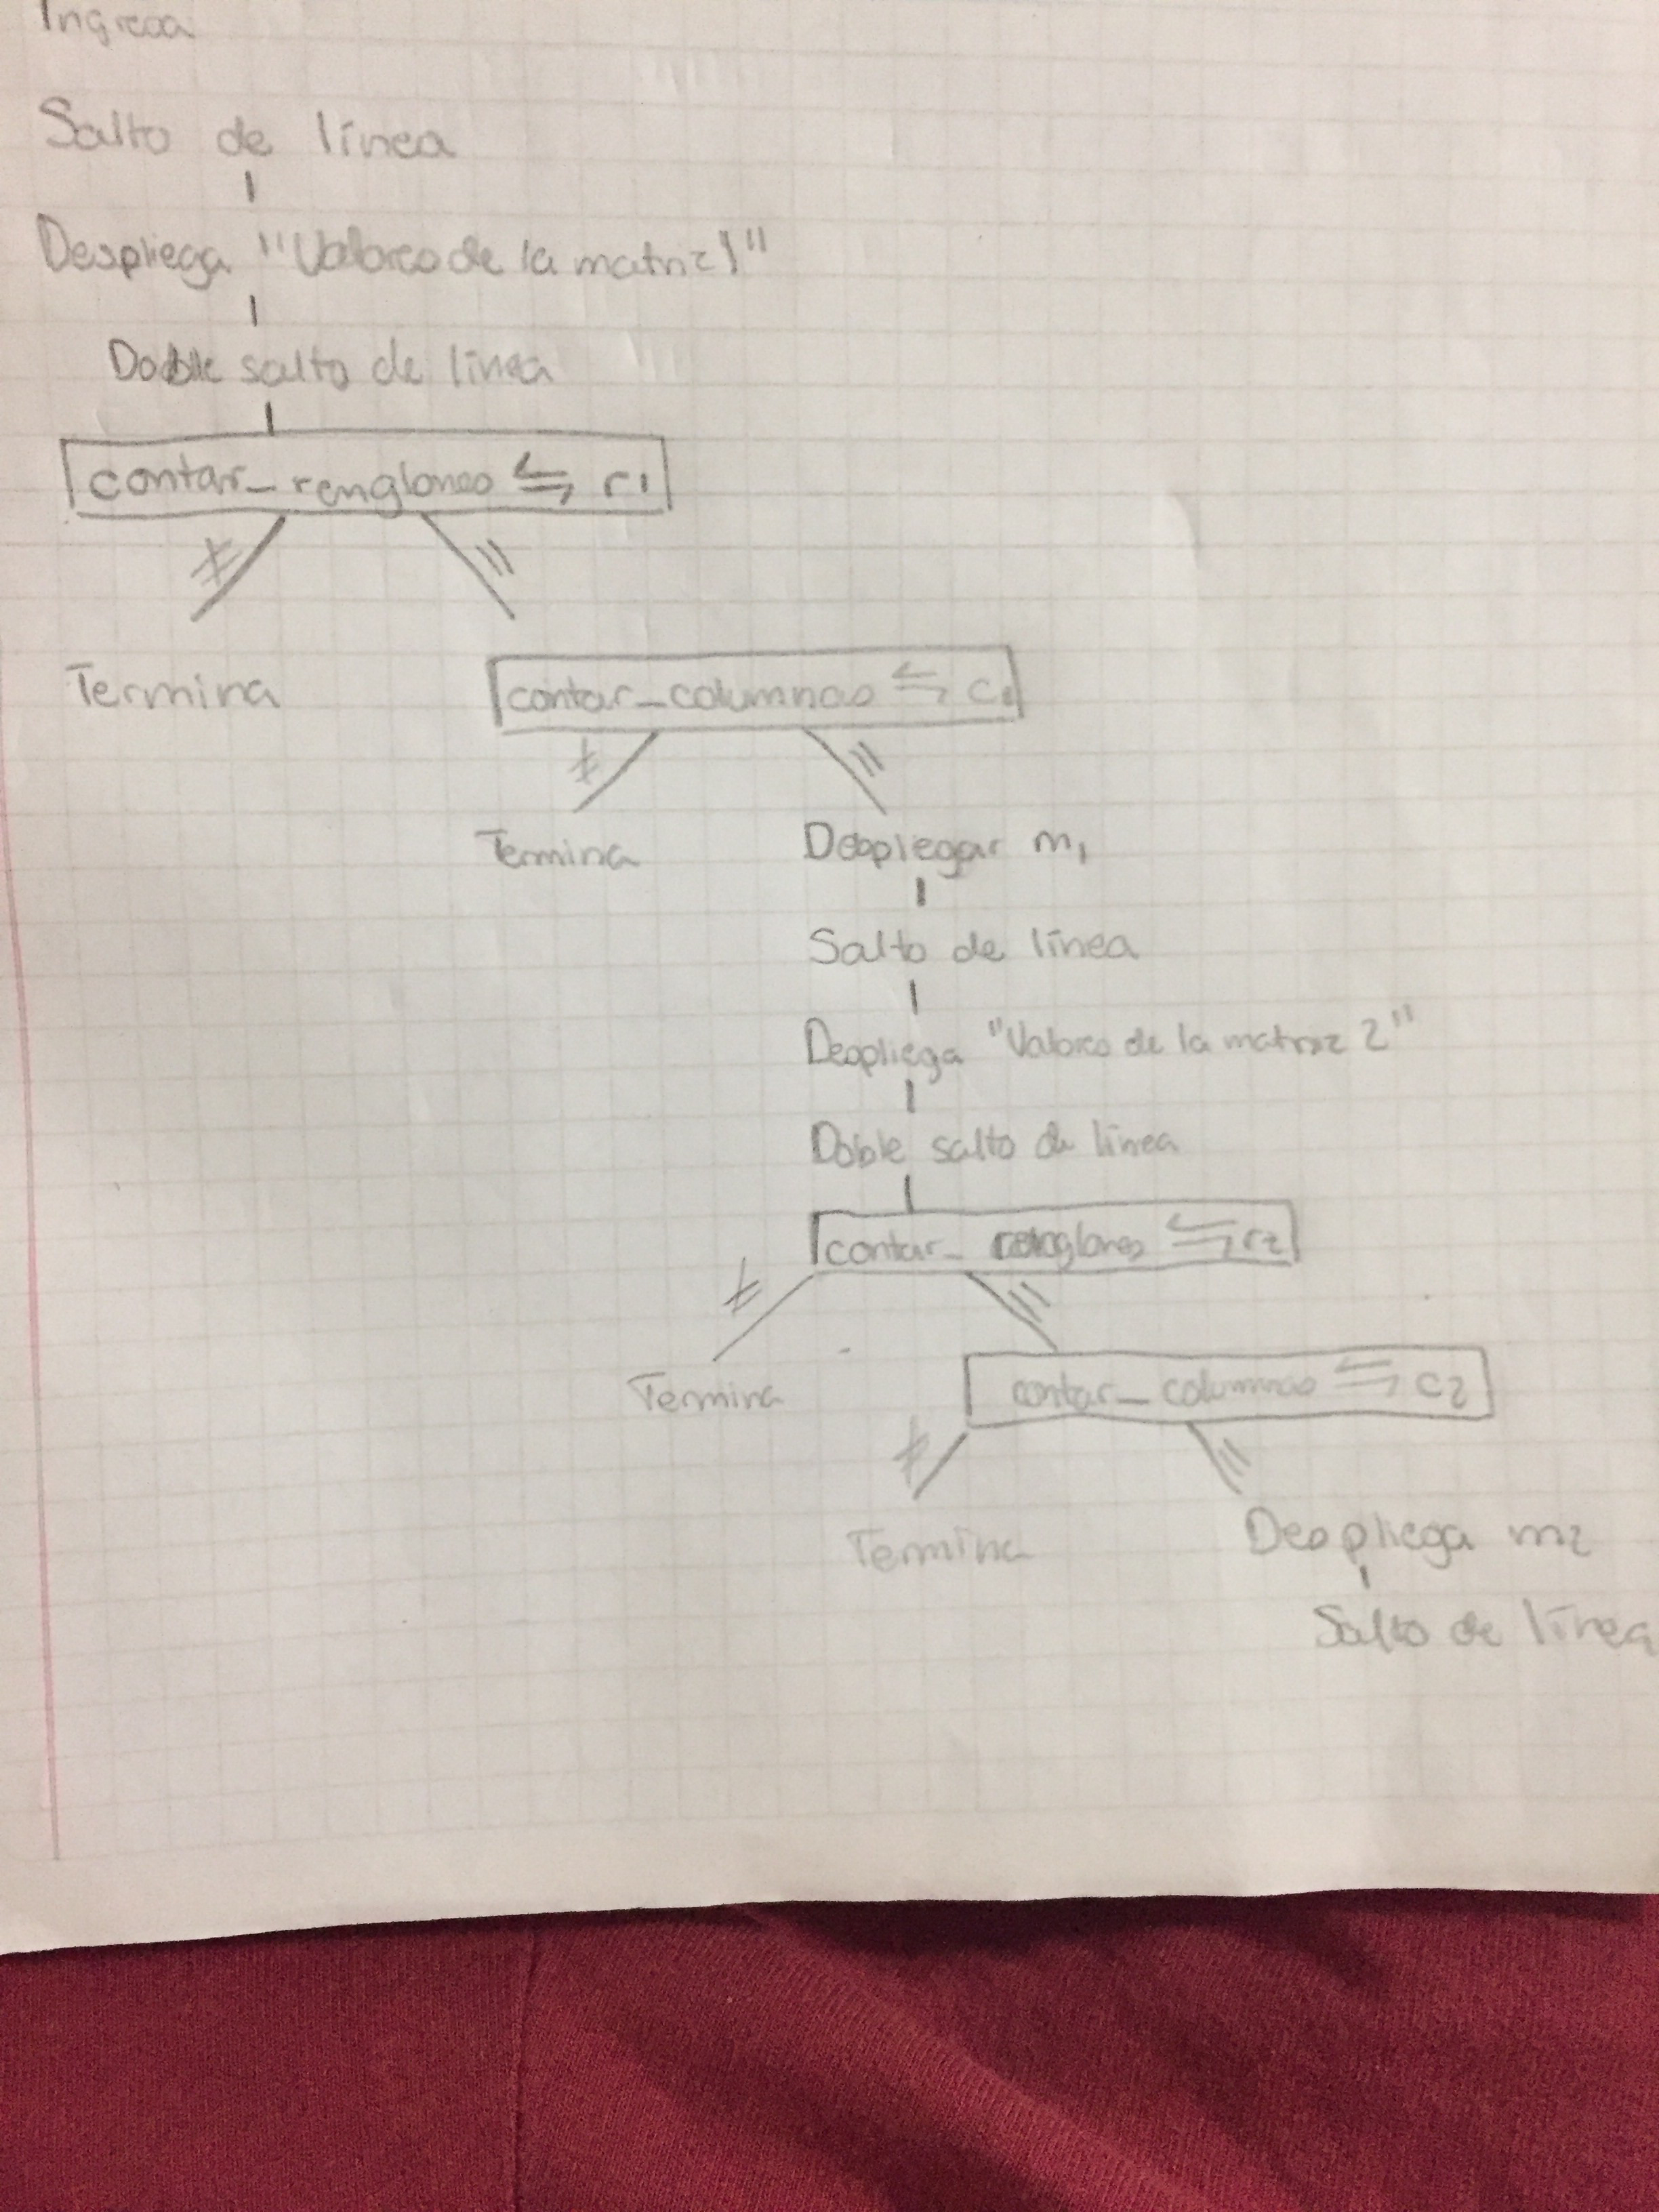 Ingresa
Salto de línea
Despliega "Valores de la matriz 1"
Doble salto de línea
contar_renglones ⇆ r1
≠ =
Termina
contar_columnas ⇆ c1
≠ =
Termina Desplegar m1
Salto de línea
Despliega "Valores de la matriz 2"
Doble salto de línea
contar_renglones ⇆ r2
≠ =
Termina
contar_columnas ⇆ c2
≠ =
Termina Despliega m2
Salto de línea